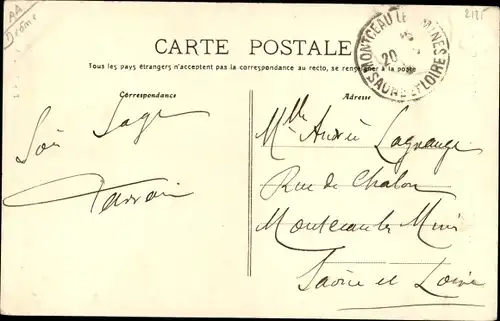 AA
Drôme
2125
CARTE POSTALE
Tous les pays étrangers n'acceptent pas la correspondance au recto, se renseigner à la poste
MONTCEAU LES MINES
20
SAONE ET LOIRE
Correspondance
Adresse
Sois Sage
Parrain
Mlle Andrée Lagrange
Rue de Chalon
Montceau les Mines
Saône et Loire